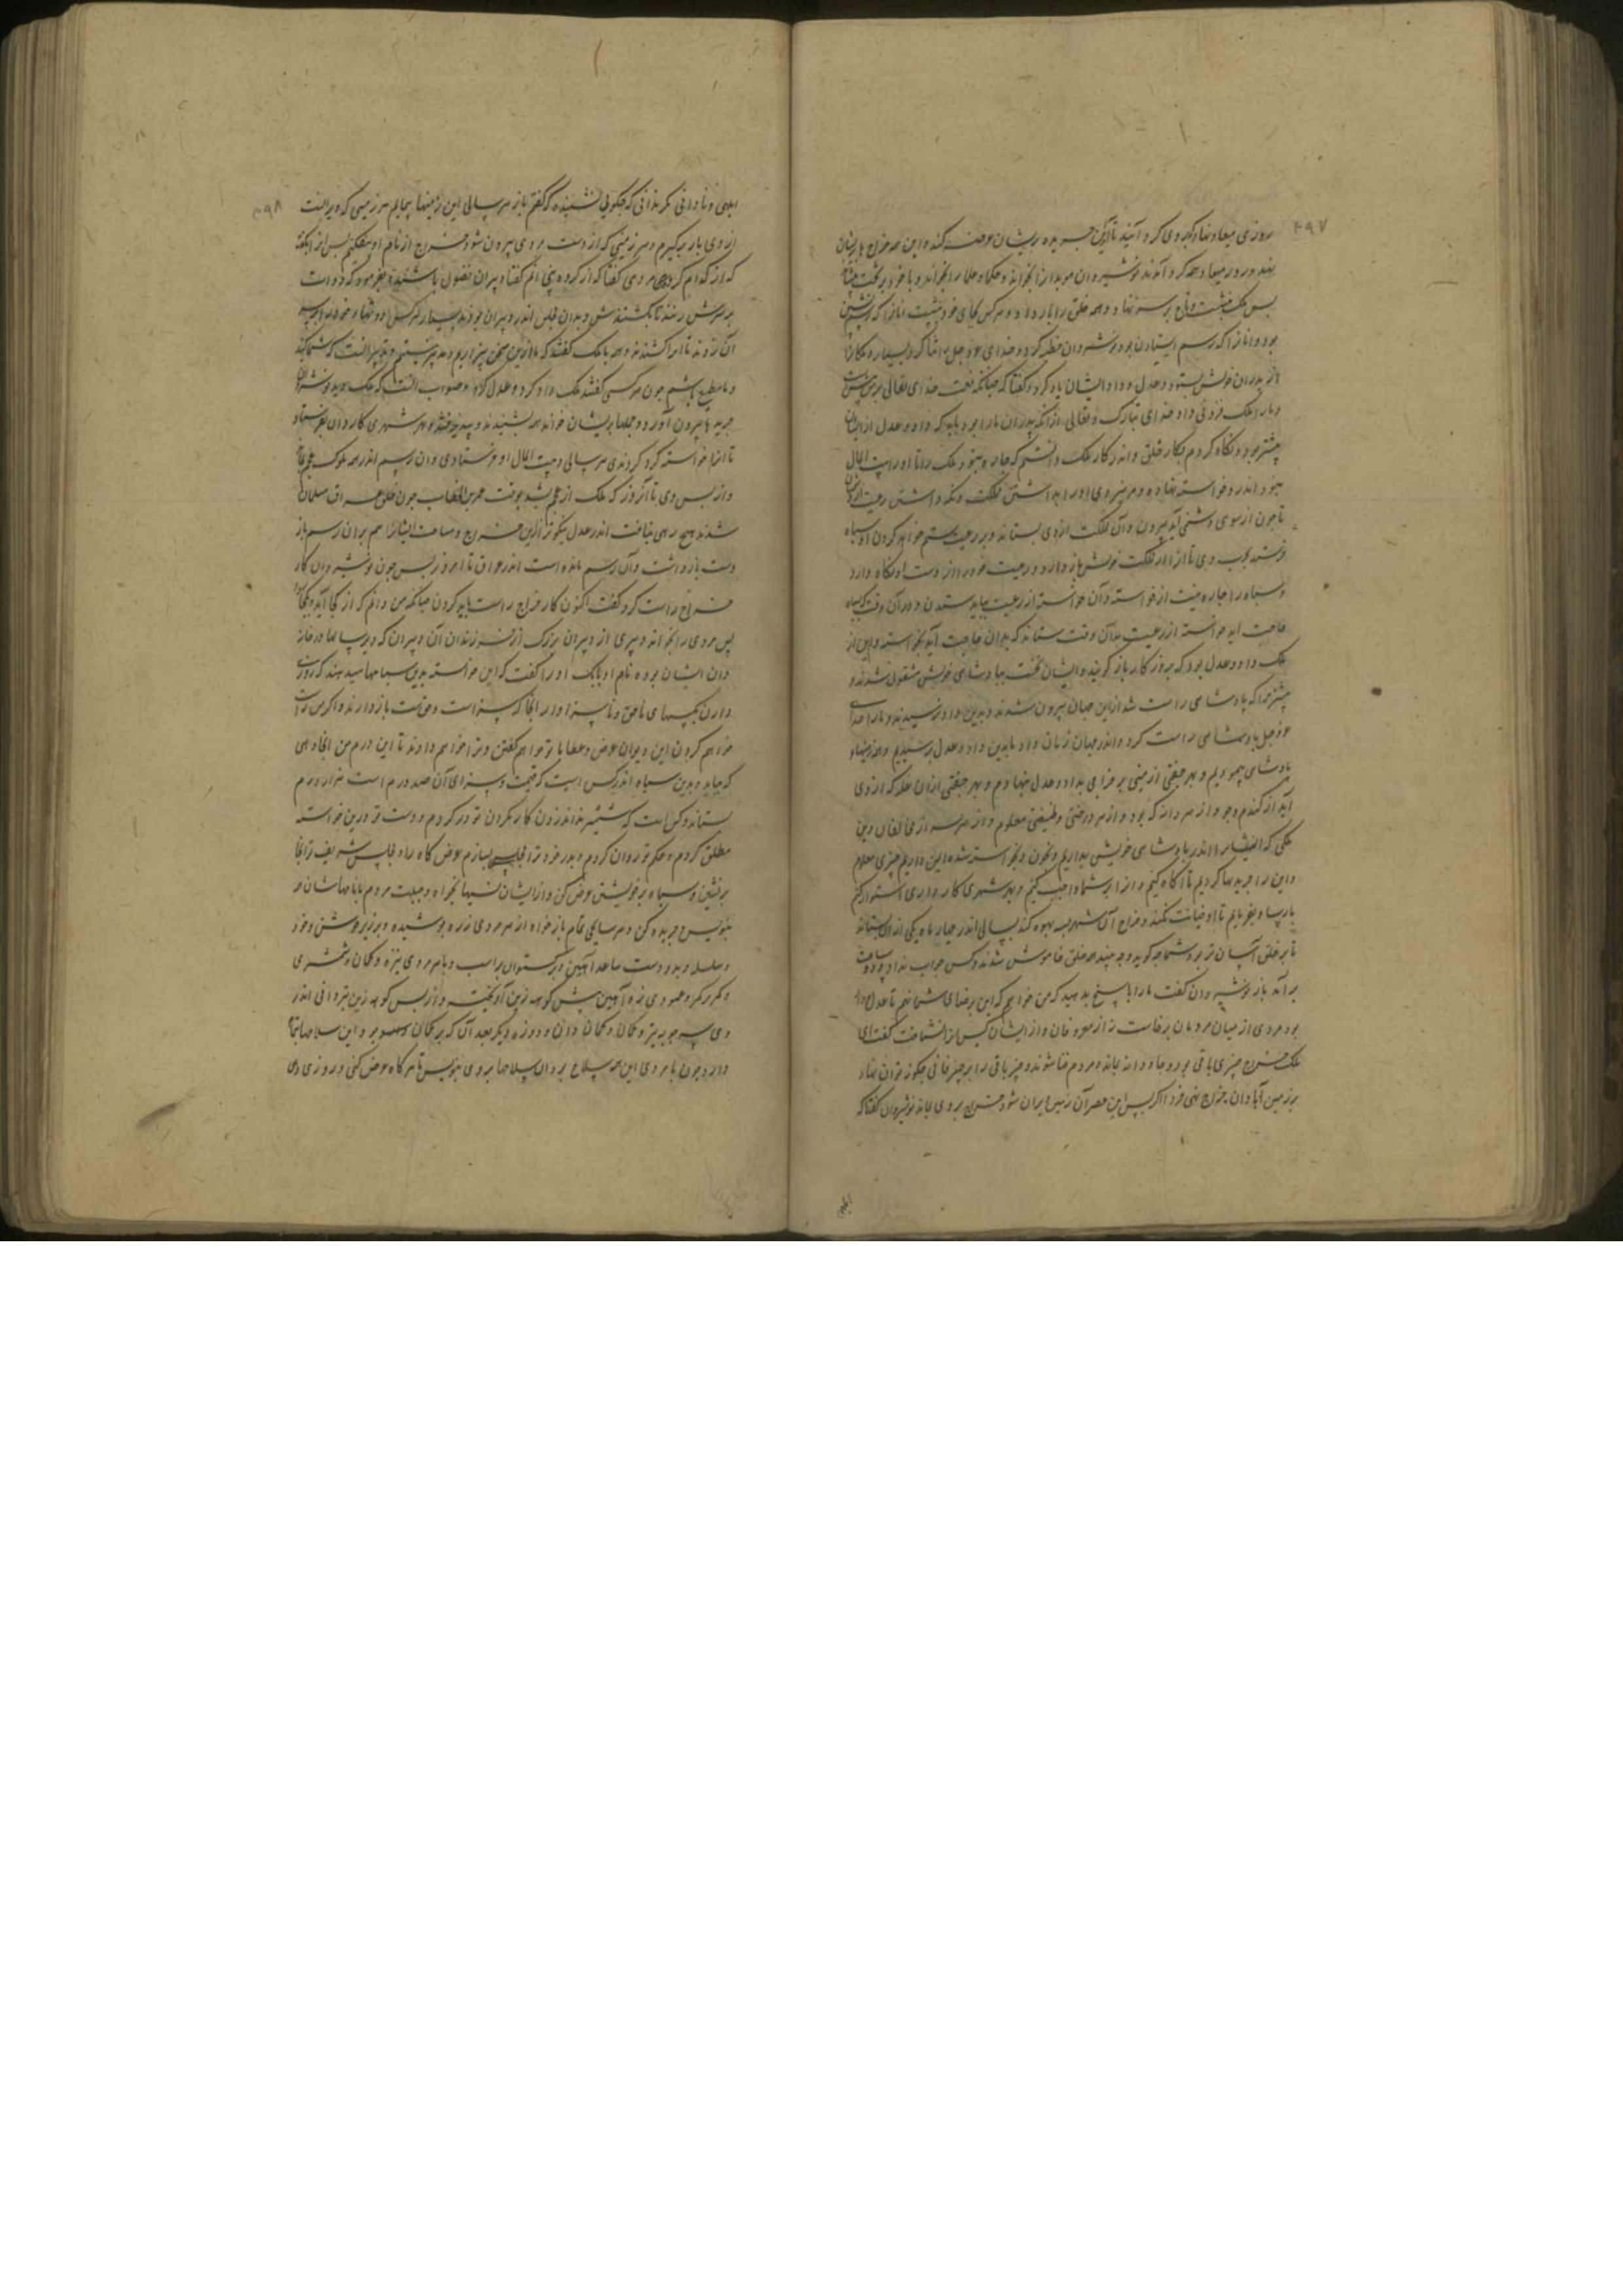 ۴۹۷
روزی میعاد نهاد که وی گرد آیند تا این جریده بریشان عرضه کند و این همه خراج بازیشان
نهد و روز میعاد همه گرد آمدند نوشیروان موبدانرا بخواند و حکما و علما را بخواند و با خود بر تخت
پس ملک بنشست و تاج بر سر نهاد و همه خلق را بار داد و هر کس بجای خود بنشست آنانرا که رسم نشستن
بود و آنانرا که رسم ایستادن بود و نوشروان خطبه کرد و خدای عز و جل را ثنا کرد بسیار و ملکانرا
از پدران خویش بستود و عدل و داد ایشان یاد کرد و گفتا که چنانکه نعمت خدای تعالی بر من
و ما را ملک فزونی داد خدای تبارک و تعالی از آنکه پدران ما را بود باید که داد و عدل از ایشان
بیشتر بود و نگاه کردم بکار خلق و اندر کار ملک دانستم که چاره نبود ملک را تا او را بیت المال
نبود اندرو خواسته نهاده و مر نیروی او را بداشتن مملکت و نگه داشتن رعیت
تا چون از سوی دشمنی آید بیرون و آن مملکت از وی بستاند و بر رعیت ستم خواهد کردن او سپاه
فرستد بحرب وی تا او را از مملکت خویش باز دارد و رعیت خود را از دست او نگاه دارد
و سپاه را چاره نیست از خواسته و آن خواسته از رعیت بباید ستدن و در آن وقت که
حاجت آید خواسته از رعیت بدان وقت ستاند که بدان حاجت آید بخواسته و این از
ملک داد و عدل بود که بروزگار باز گویند و ایشان نخست بپادشاهی خویش مشغول شدند و
بیشتر مرا که پادشاهی راست شد ازین جهان بیرون شدند و بدین داد نرسیدند و ما را خدای
عز و جل پادشاهی راست کرد و اندر جهان زمان داد تا بدین داد و عدل برسیدیم و همه زمینها
پادشاهی پیمودیم و بهر جفتی از زمینی بر خراجی بداد و عدل بنهادم و بهر جفتی ازان غله که از وی
آید از گندم و جو و از هر دانه که بود و از هر درختی وظیفتی معلوم و از هر سر از مخالفان دین
ملکی که ایشانرا اندر پادشاهی خویش بداریم و بخون و بخواسته شده این داریم چیزی معلوم
و این را جریدها کردیم تا آگاه کنیم و از ابر شما واجب کنیم و بهر شهری کارداری استوار کنیم
پارسا و بفرمایم تا او خیانت نکند و خراج آن شهر بدیهه کند بسالی اندر چهار ماه یکی ازان بستاند
تا بر خلق آسان تر بود شما چه گویید و چه بینید همه خلق خاموش شدند و کس جواب نداد و دو ساعت
بر آمد باز نوشیروان گفت ما را پاسخ بدهید که من خواهم که این برضای شما نهم تا عدل و داد
بود مردی از میان مردمان برخاست نه از معروفان و از ایشان کس او را نشناخت گفت ای
ملک خراج چیزی باقی بود و جاودانه بماند و مردم فنا شوند و چیز باقی را بر چیز فانی چگونه توان نهاد
بر زمین آبادان خراج نهی فردا اگر پس ازین عصر آن زمین ویران شود خراج بر وی بماند نوشیروان گفتا که
۴۹۸
ابلهی و نادانی مگر ندانی که چگونی نشنیده که گفتم باز هر سالی این زمینها بپیمایم هر زمینی که ویران است
از وی بار برگیرم و هر زمینی که از دست مردی بیرون شود خراج از نام او بیفکنم پس او را گفت
که از کدام گروهی مردی گفتا که از گروه دبیرانم گفتا دبیران فضول باشند بفرمود که دوات
بر سرش زنند تا بکشتندش و بدان مجلس اندر دبیران خود بسیار هر کسی دو دوات بر سر
آن زدند تا مرا کشتند و همه با ملک گفتند که ما ازین سخن بیزاریم و نپسندیم و تدبیر آنست که شما کنید
و ما مطیع باشیم چون هر کسی گفتند ملک داد کرد و عدل کرد و صواب آنست که ملک گوید نوشروان
جریدها بیرون آورد و جملها بریشان خواند همه بشنیدند و پذیرفتند و بهر شهری کاردان بفرستاد
تا آنرا خواسته گرد کردندی هر سالی و بیت المال او فرستادی و آن رسم اندر همه ملوک عجم بماند
و از پس وی تا آنروز که ملک از عجم بشد بوقت عمر بن الخطاب چون خلق عراق مسلمان
شدند هیچ رهی نیافت اندر عدل نیکوتر ازین خراج و مساحت ایشانرا هم بران رسم باز
دست بازداشت و آن رسم مانده است اندر عراق تا امروز پس چون نوشیروان کار
خراج راست کرد گفت اکنون کار خراج راست باید کردن چنانکه من دانم که از کجا آید و کجا
پس مردی را بخواند و پیری از دبیران بزرگ از فرزندان آن دبیران که دیر سالها در خانه
دان ایشان بوده نام او بابک او را گفت که این خواسته بدین سپاهها میدهند که روزی
دارن بکسهای ناحق و ناسزاوار آنجا که سزاست و حق است باز دارند و اگر من راست
خواهم کردن این دیوان عرض و عطا با تو خواهم گفتن و ترا خواهم دادند تا این درم من آنجا دهی
که بباید و بدین سپاه اندر کس است که قیمت و سزای آن صد درم است هزار درم
ستاند و کس است که شمشیر نداند زدن کار بگردن تو در کردم و دست تو درین خواسته
مطلق کردم و حکم تو روان کردم و بدر خود ترا مجلس بسازم عرض گاه را و مجلس شریف تر آنجا
برنشین و سپاه بر خویشتن عرض کن و از ایشان نسبها بخواه و حلیت مردم با نامهاشان مر
بنویس و جریده کن و هر سلاحی تمام باز خواه از هر مردی زره پوشیده و بر زبر جوشن و خود
و سلسله و بدو دست ساعد آهنین و برگستوان بر اسب و با هر مردی نیزه و کمان و شمشیری
و کمر بر کمر و عمودی نه آهنین پیش کوهه زین آویخته و از پس کوهه زین تیردانی اندر
وی سه چوبه تیر و کمان و کمان دان و دو زه دیگر بعد آن که بر کمان بود و این سلاحها تمام
دارد چون با مردی این همه سلاح بود آن سلاحها بر وی بنویس تا هر گاه عرض کنی و روزی دهی